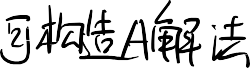 可构造A解法